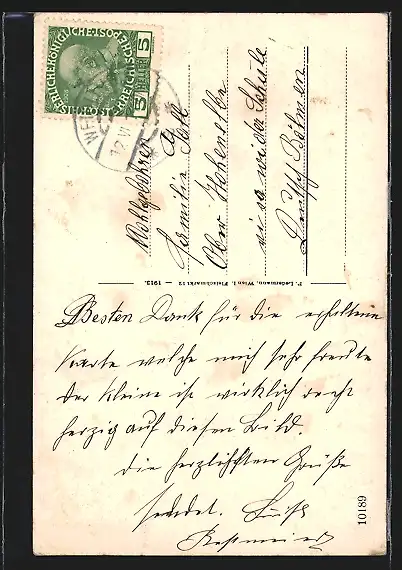 KAISERLICHE KÖNIGLICHE ÖSTERREICHISCHE POST
5 HELLER 5
WE
12 VI
Wohlgeboren
Familie
Ober Hohenelbe
vis a vis der Schule
Deutsch Böhmen
P. Ledermann, Wien I., Fleischmarkt 12 — 1913.
Besten Dank für die erhaltene
Karte welche mich sehr freute
der Kleine ist wirklich recht
herzig auf diesen Bild.
die herzlichsten Grüße
sendet.
10189